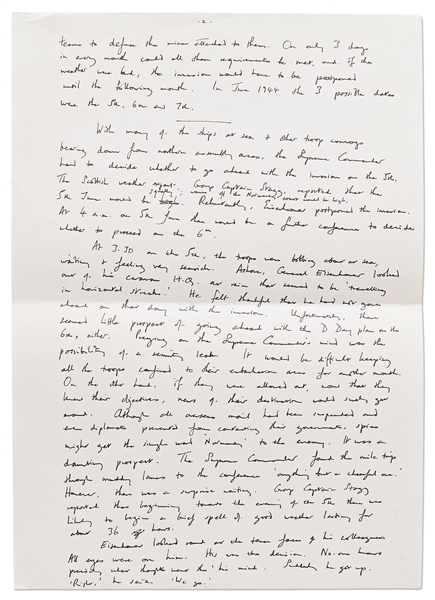 - 2 -
teams to defuse the mines attached to them. On only 3 days
in every month could all these requirements be met, and if the
weather were bad, the invasion would have to be postponed
until the following month. In June 1944 the 3 possible dates
were the 5th, 6th and 7th.
With many of the ships at sea & other troop convoys
bearing down from northern assembly areas, the Supreme Commander
had to decide whether to go ahead with the invasion on the 5th.
The Scottish weather expert, Group Captain Stagg, reported that the
5th June would be stormy; waves off the Normandy coast would be high.
Reluctantly, Eisenhower postponed the invasion.
At 4 a.m. on 5th June there would be a further conference to decide
whether to proceed on the 6th.
At 3.30 on the 5th, the troops were bobbing about at sea,
waiting & feeling very seasick. Ashore, General Eisenhower looked
out of his caravan H.Q. at rain that seemed to be 'travelling
in horizontal streaks.' He felt thankful that he had not gone
ahead on that day with the invasion. Unfortunately, there
seemed little prospect of going ahead with the D Day plan on the
6th, either. Preying on the Supreme Commander's mind was the
possibility of a security leak. It would be difficult keeping
all the troops confined to their embarkation areas for another month.
On the other hand, if they were allowed out, now that they
knew their objectives, news of their destination would surely get
around. Although all overseas mail had been suspended and
even diplomats prevented from contacting their governments, spies
might get the single word 'Normandy' to the enemy. It was a
daunting prospect. The Supreme Commander found the mile trip
through muddy lanes to the conference 'anything but a cheerful one.'
However, there was a surprise waiting. Group Captain Stagg
reported that beginning towards the evening of the 5th there was
likely to begin a brief spell of good weather lasting for
about 36 hours.
Eisenhower looked round at the tense faces of his colleagues.
All eyes were on him. His was the decision. No-one knows
precisely what thoughts went thro' his mind. Suddenly he got up.
'Right,' he said. 'We go.'